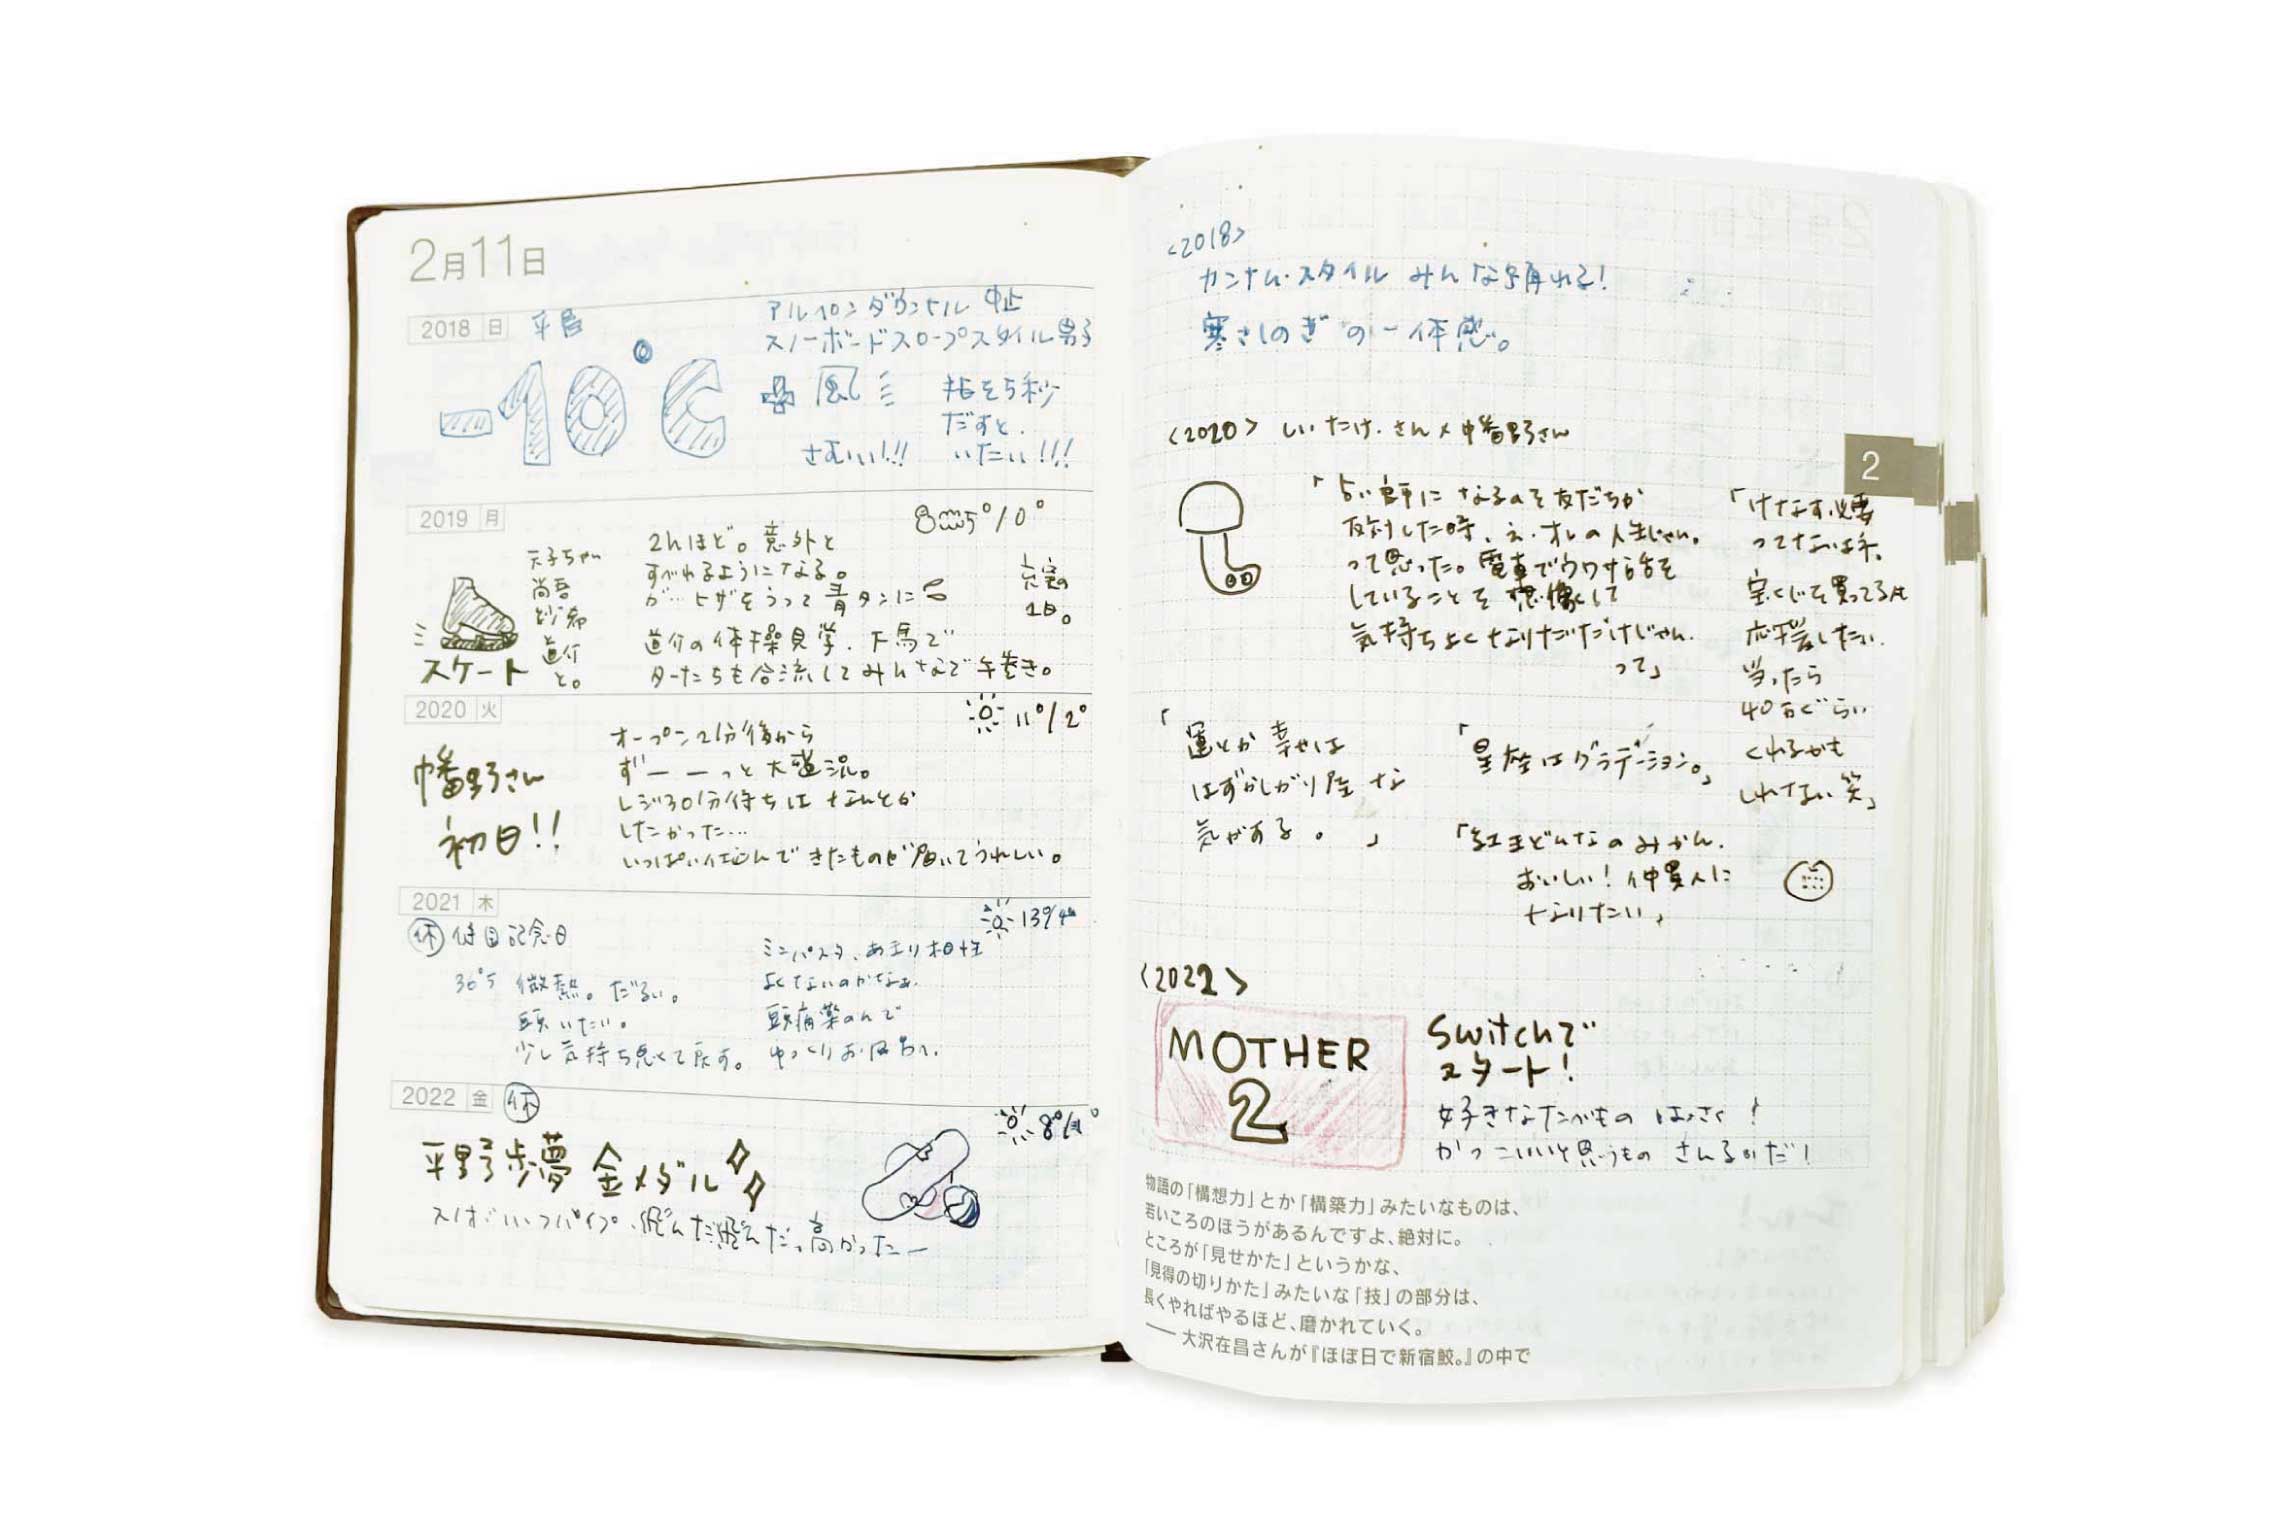 2月11日
2018 日 平昌
アルペンダウンヒル 中止
スノーボードスロープスタイル男子
-10℃ + 風
指を5秒
だすと、
さむいい!!! いたい!!!
2019 月
5°/0°
スケート
尚吾
紗希
道介
と。
2hほど。意外と
すべれるようになる。
が…ヒザをうって青タンに
充実の
1日。
道介の体操見学、下馬で
ターたちも合流してみんなで手巻き。
2020 火
11°/2°
幡野さん
初日!!
オープン2分後から
ずーーっと大盛況。
レジ30分待ちはなんとか
したかった…
いっぱい仕込んできたものが届いてうれしい。
2021 木
13°/4°
休 休日記念日
36°5 微熱。だるい。
頭いたい。
少し気持ち悪くて戻す。
ミニパスタ、あまり相性
よくないのかなぁ。
頭痛薬のんで
ゆっくりお風呂へ。
2022 金 休
8°/1°
平野歩夢 金メダル
スノボ ハーフパイプ、飛んだ飛んだっ高かったー
<2018>
カンナム・スタイル みんな踊れる!
寒さしのぎの一体感。
<2020> しいたけ.さん×幡野さん
「占い師になるのを友だちが
反対した時、え、オレの人生じゃん。
って思った。電車でウワサ話を
していることを想像して
気持ちよくなりたいだけじゃん。
って」
「けなす必要
ってないよネ。
宝くじを買ってる人
応援したい。
当ったら
40万ぐらい
くれるかも
しれない笑」
「運とか幸せは
はずかしがり屋な
気がする。」
「星座はグラデーション。」
「紅まどんなのみかん、
おいしい!仲買人に
なりたい」
<2022>
MOTHER
2
Switchで
スタート!
好きなたべもの はっさく!
かっこいいと思うもの さんるいだ!
物語の「構想力」とか「構築力」みたいなものは、
若いころのほうがあるんですよ、絶対に。
ところが「見せかた」というかな、
「見得の切りかた」みたいな「技」の部分は、
長くやればやるほど、磨かれていく。
── 大沢在昌さんが『ほぼ日で新宿鮫。』の中で
2